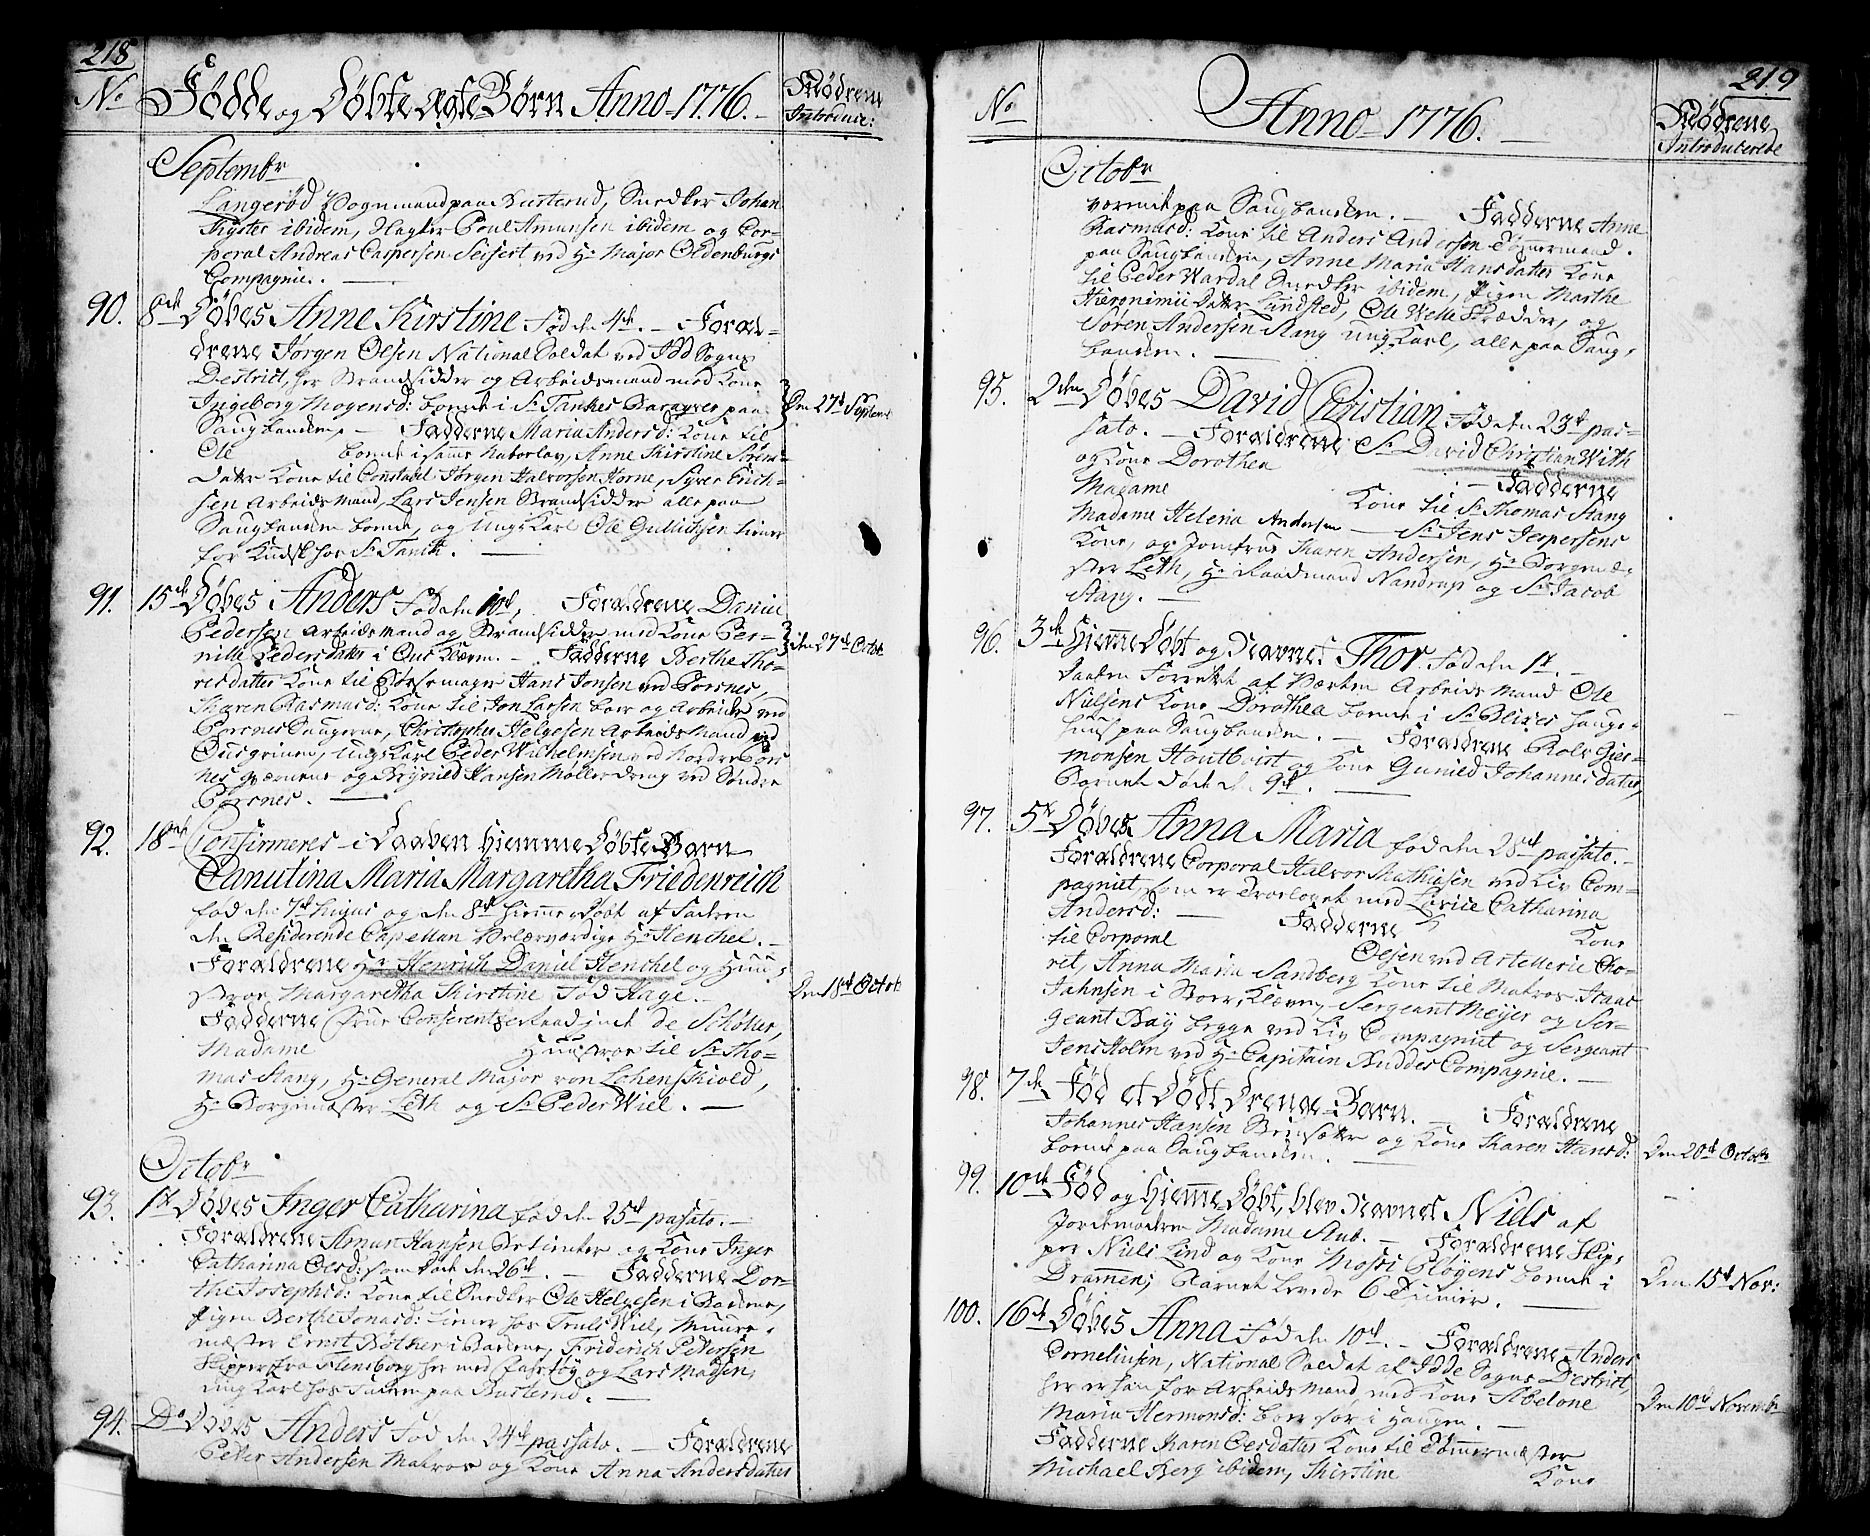 218
No
Fødde og Døbte Ægte Børn Anno 1776.
Mødrene
Introduce:
Septembr
Langerød Vognmand paa Busterud, Snedker Johan
ibidem, Poul Amunsen ibidem og Cor-
poral Andreas Caspersen Seifert ved Hr Major Oldenburgs
Compagnie.
90. 8de Døbes Anne Kirstine Fød den 4de. — Foræl-
drene Jørgen Olsen National Soldat ved Idd Sogns
Destrict, her Strandsidder og Arbeidsmand med Kone
Ingeborg Mogensd: boende i Sr Tankes paa
Saugbanken. — Fadderne Maria Andersd: Kone til
Ole boende i samme Naboelav, Anne Kirstine Sørens-
datter Kone til Constabel Jørgen Halvorsen Horne, Syver Erich-
sen Arbeidsmand, Lars Jensen Strandsidder alle paa
Saugbanken boende, og Ung Karl Ole Gullichsen tiener
for Kudsk hos Sr Tank.
Den 27de Septemb
91. 15de Døbes Anders Fød den 10de, Forældrene Daniel
Pedersen Arbeidsmand og Strandsidder med Kone Per-
nille Pedersdatter i Ous Kleven. — Fadderne Berthe Tho-
resdatter Kone til Hans Jonsen ved Porsnes,
Karen Rasmusd: Kone til Jon Larsen boer og Arbeider ved
Porsnes Saugerne, Christopher Helgesen Arbeids Mand ved
Ous grinen, Ung Karl Peder Wilhelmsen ved Nordre Pors-
nes qværnene og Brynild Hansen Møller dreng ved Søndre
Porsnes. —
den 27de Octob
92. 18de Confirmeres i Daaben Hiemme Døbte Barn
Canutina Maria Margaretha Friedenreich
fød den 7de hujus og den 8de hiemme Døbt af Faderen
den Residerende Capellan Velærværdige Hr Henchel. —
Forældrene Hr Henrich Daniel Henchel og Huu-
stroe Margaretha Kirstine Fød Hage. —
Fadderne Frue Conferentzraadinde de Schøller,
Madame Huustroe til Sr Tho-
mas Stang, Hr General Major von Lohenskiold,
Hr Borgemester Leth og Sr Peder Wiel. —
Den 18de Octob
Octobr
93. 1te Døbes Inger Catharina fød den 25de passato. —
Forældrene Amun Hansen og Kone Inger
Catharina Olesd: som døde den 26de. — Fadderne Dor-
the Josephsd: Kone til Snedker Ole Helgesen i Bödene,
Pigen Berthe Jonasd: tiener hos Truls Wiel, Muure-
mester Ernst Bøther i Bödene, Friderich Petersen
Skipper fra Flensborg her med Fahrtøy og Lars Madsen,
ung Karl hos Faderen paa Busterud. —
94. Do Døbes Anders Fød den 24de passato. — Forældrene
Peder Andersen Matros og Kone Anna Andersdatter
219
No
Anno 1776.
Mødrene
Introducerede
Octobr
boende paa Saugbanken. — Fadderne Anne
Rasmusd: Kone til Anders Andersen Tømmermand
paa Saugbanken, Anne Maria Hansdatter Kone
til Peder Wardal Snedker ibidem, Pigen Marthe
Hieronimii Datter Lundsted, Ole Welle Skrædder, og
Søren Andersen Stang ung Karl, alle paa Saug-
banken. —
95. 2den Døbes David Christian Fød den 23de pas-
sato. — Forældrene Sr David Christian With
og Kone Dorothea — Fadderne
Madame Kone til Sr Thomas Stang
Madame Helena Andersen — Sr Jens Jespersens
Kone, og Jomfrue Karen Andersen, Hr Borgeme-
ster Leth, Hr Raadmand Nandrup og Sr Jacob
Stang. —
96. 3de Hjemme Døbt og Navnet Thor Fød den 1te. —
Daaben Forrettet af Værten Arbeids Mand Ole
Nielsens Kone Dorothea boende i Sr Blixes Hauge-
huus paa Saugbanken. — Forældrene Rolv Gier-
monsen Houtkvist og Kone Gunild Johannesdatter,
Barnet døde d. 9de. —
97. 5te Døbes Anna Maria fød den 28de passato. —
Forældrene Corporal Halvor Mathiesen ved Liv Com-
pagniet, som er Trovlovet med Lovise Catharina
Andersd: — Fadderne Kone
til Corporal Olsen ved Artellerie Cho-
ret, Anna Maria Sandberg Kone til Matros Isaac
Jahnsen i Kleven, Sergeant Meyer og Ser-
geant Bay begge ved Liv Compagniet og Sergeant
Jens Holm ved Hr Capitain Buddes Compagnie. —
98. 7de Fød et Dødt Drenge-Barn. — Forældrene
Johannes Hansen og Kone Karen Hansd:
boende paa Saugbanken. —
Den 20de Octob
99. 10de Fød og Hjemme Døbt, blev Navnet Niels af
Jordemoderen Madame Stub. — Forældrene Skip-
per Niels Lind og Kone Mossi Pløyens boende i
Drammen; Barnet levede 6 Timer. —
Den 15de Nov:
100. 16de Døbes Anna Fød den 10de. — Forældrene Anders
Corneliusen, National Soldat af Idde Sogns Destrict,
her er han for Arbeids Mand med Kone Sibelone
Maria Hermonsd: boer sør i Haugen. —
Fadderne Karen Olesdatter Kone til Tømmermester
Michael Berg ibidem, Kirstine Kone
Den 10de Novemb